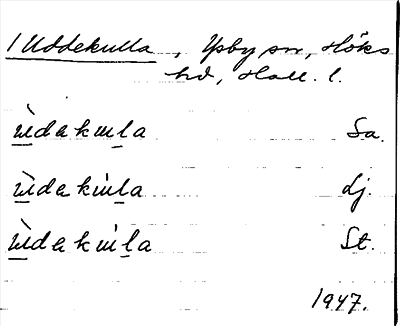 / Uddekulla , Ysby sn, Höks
hd, Hall. l.
ùdakuḷa Sa.
ùdakúḷa dj.
ùdakúḷa St.
1947.